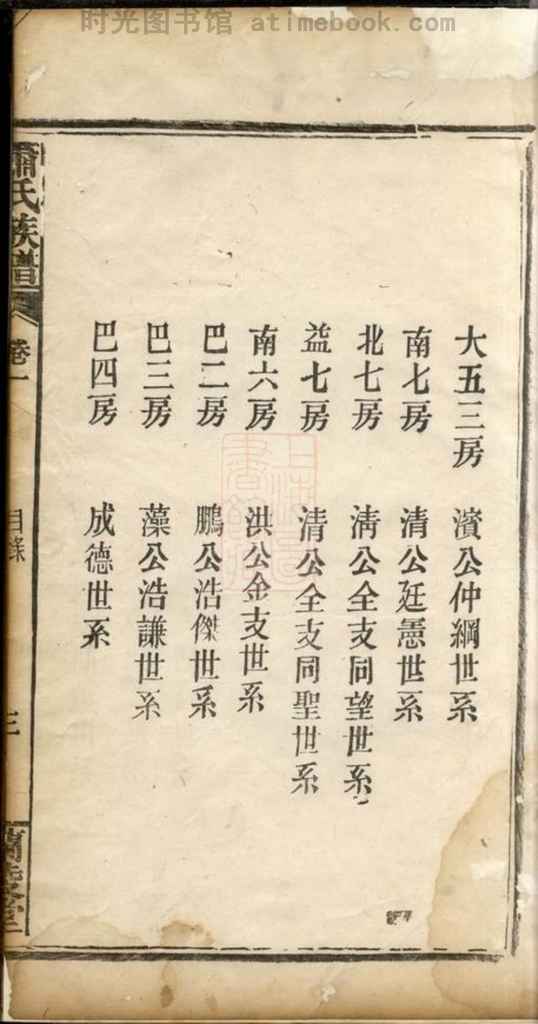 时光图书馆 atimebook.com
大五三房 濱公仲綱世系
南七房 清公廷憲世系
北七房 清公全支同望世系
益七房 清公全支同聖世系
南六房 洪公金支世系
巴二房 鵬公浩傑世系
巴三房 藻公浩謙世系
巴四房 成德世系
蕭氏族譜 卷一 目錄 三